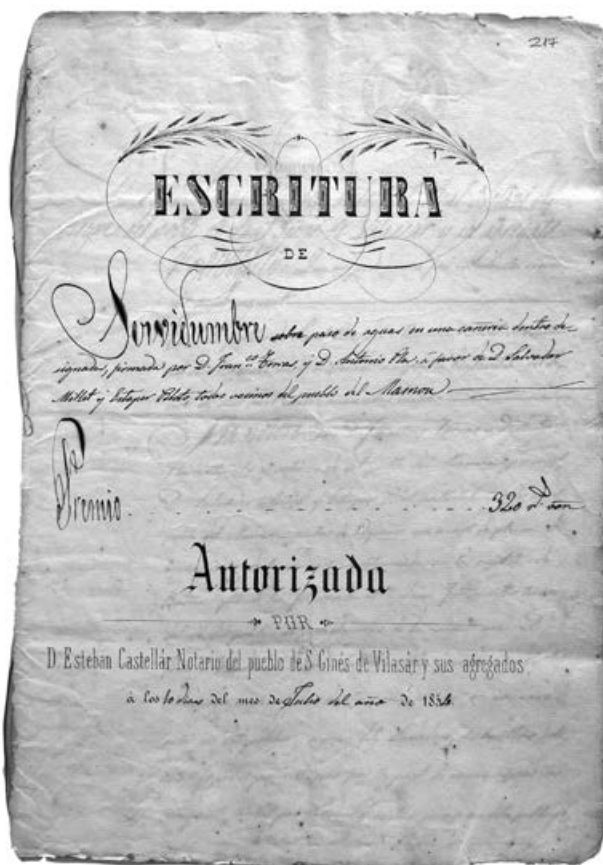 217
ESCRITURA
DE
Servidumbre sobre paso de aguas en una cañeria dentro de-
signada, firmada por D. Fran.co y D. Antonio Pla. à favor de D. Salvador
Millet y Piloto, todos vecinos del pueblo del Masnou
Premio 320 r.s von
Autorizada
POR
D. Esteban Castellár Notario del pueblo de S. Ginés de Vilasár y sus agregados,
à los 10 dias del mes de Julio del año de 185